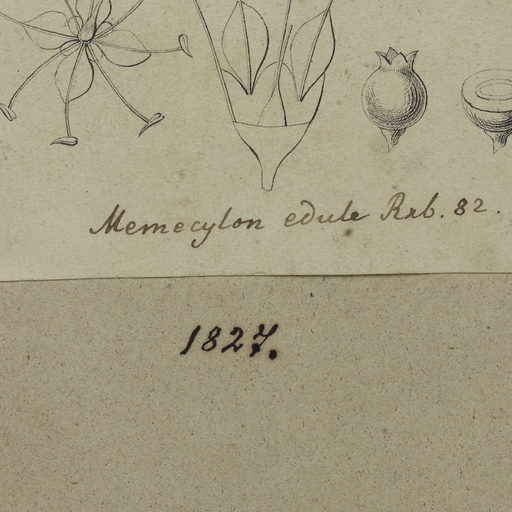 Memecylon edule Rxb. 82.
1827.